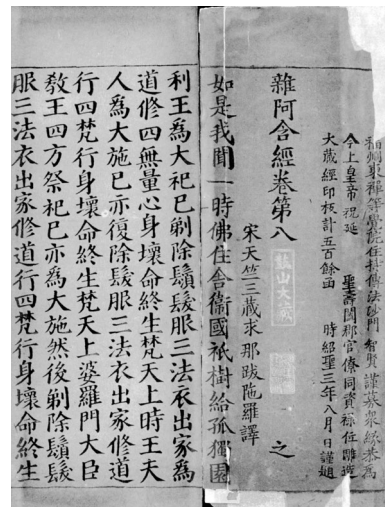 福州東禪等覺院住持傳法沙門 智賢 謹募衆緣恭爲
今上皇帝祝延 聖壽闔郡官僚同資祿位雕造
大藏經印板計五百餘函 時紹聖三年八月日謹題
雜阿含經卷第八 之
鼓山大藏
宋天竺三藏求那跋陁羅譯
如是我聞一時佛住舍衛國祇樹給孤獨園
利王爲大祀已剃除鬚髮服三法衣出家爲
道修四無量心身壞命終生梵天上時王夫
人爲大施已亦復除髮服三法衣出家修道
行四梵行身壞命終生梵天上婆羅門大臣
教王四方祭祀已亦爲大施然後剃除鬚髮
服三法衣出家修道行四梵行身壞命終生